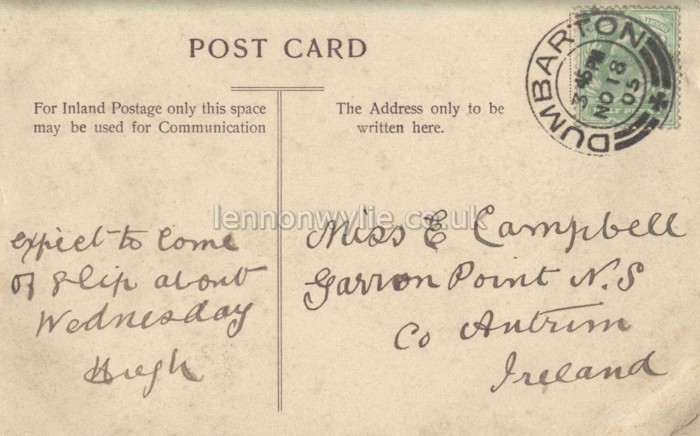 POST CARD
For Inland Postage only this space
may be used for Communication
The Address only to be
written here.
DUMBARTON
3 45 PM
NO 18
05
lennonwylie.co.uk
expect to come
of slip about
Wednesday
Hugh
Miss E Campbell
Garron Point N.S
Co Antrim
Ireland